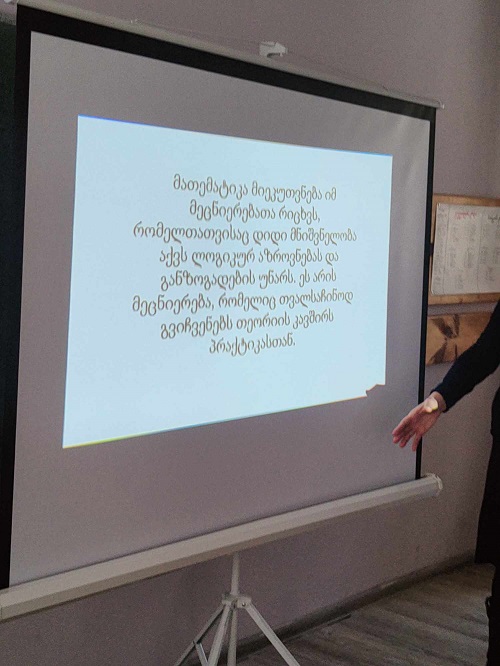 მათემატიკა მიეკუთვნება იმ
მეცნიერებათა რიცხვს,
რომელთათვისაც დიდი მნიშვნელობა
აქვს ლოგიკურ აზროვნებას და
განზოგადების უნარს. ეს არის
მეცნიერება, რომელიც თვალსაჩინოდ
გვიჩვენებს თეორიის კავშირს
პრაქტიკასთან.